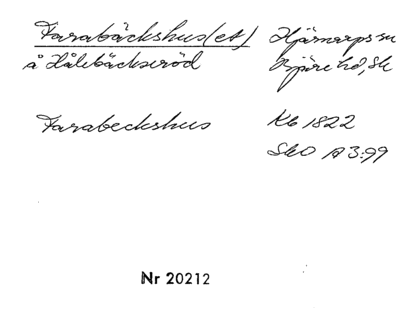 Farabäckshus(et) Hjärnarps sn
å Hålebäckseröd Bjäre hd, Sk
Farabeckshus Kb 1822
SkO A3:99
Nr 20212